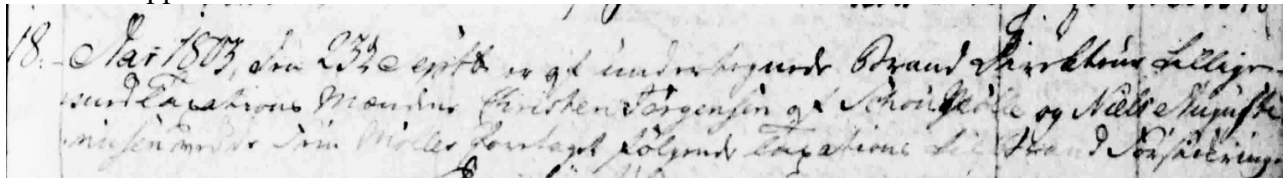 18. Aar 1803, den 23de Septb er af undertegnede Brand Directeur tillige
med Taxations Mændene Christen Jørgensen af Schou Mølle og Niels Auguste
Møller foretaget følgende Taxations til Brand Forsikering